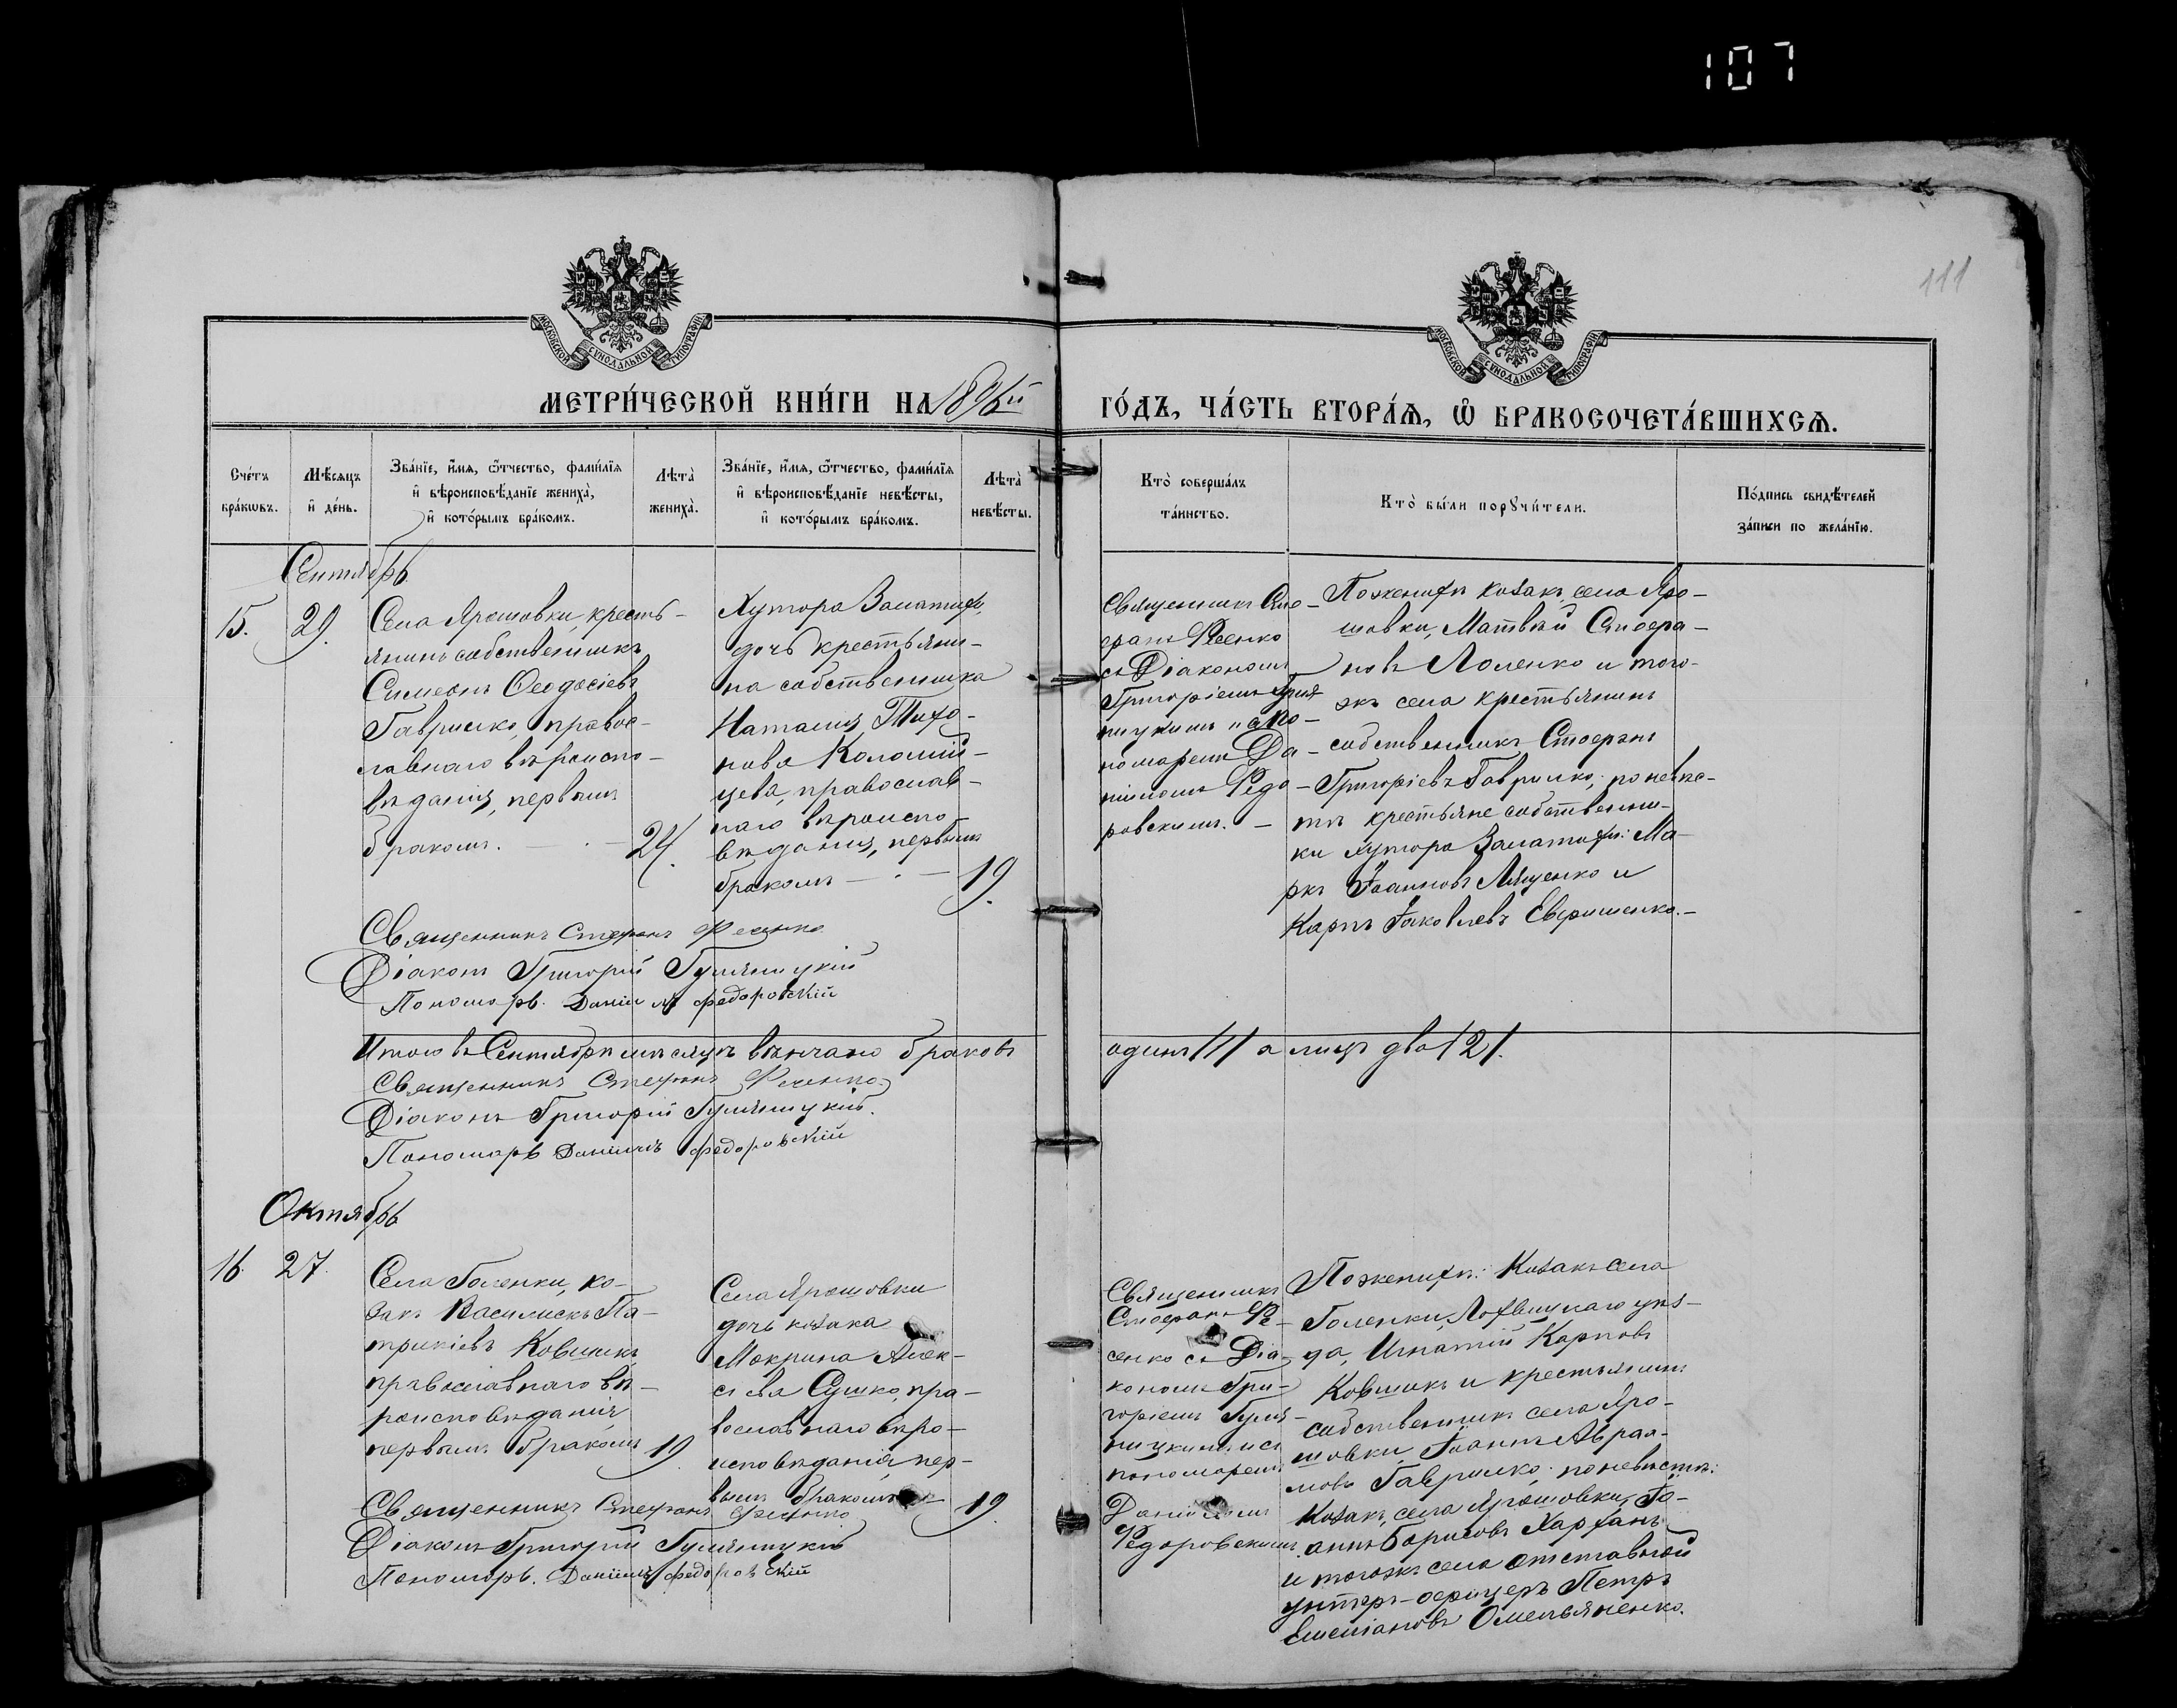 107
111
МОСКОВСКОЙ СѴНОДАЛЬНОЙ ТИПОГРАФІИ
МОСКОВСКОЙ СѴНОДАЛЬНОЙ ТИПОГРАФІИ
МЕТРИ́ЧЕСКОЙ КНИ́ГИ НА 1896й ГО́ДЪ, ЧА́СТЬ ВТОРА́Ѧ, Ѡ҆ БРАКОСОЧЕТА́ВШИХСѦ.
Сче́тъ
бра́кѡвъ.
Мѣ́сяцъ
и҆ де́нь.
Зва́нїе, и҆́мѧ, ѻ҆́тчество, фами́лїѧ
и҆ вѣроисповѣ́данїе жениха̀,
и҆ кото́рымъ бра́комъ.
Лѣта̀
жениха̀.
Зва́нїе, и҆́мѧ, ѻ҆́тчество, фами́лїѧ
и҆ вѣроисповѣ́данїе невѣ́сты,
и҆ кото́рымъ бра́комъ.
Лѣта̀
невѣ́сты.
Кто̀ соверша́лъ
та́инство.
Кто̀ бы́ли порꙋчи́тели.
По́дпись свидѣ́телей
за́писи по жела́нїю.
Сентябрь
15. 29.
Села Ярошовки, кресть-
янинъ собственникъ
Симеонъ Ѳеодосіевъ
Гаврилко, правос-
лавнаго вѣроиспо-
вѣданія, первымъ
бракомъ. 24.
Хутора Заматихи,
дочь крестьяни-
на собственника
Наталия Тихо-
нова Коломій-
цева, православ-
наго вѣроиспо-
вѣданія, первымъ
бракомъ 19.
Священникъ Сте-
фанъ Фесенко
съ Діакономъ
Григоріемъ Гумя-
ницкимъ и по-
номаремъ Да-
ніиломъ Федо-
ровскимъ.
По женихѣ козакъ села Яро-
шовки, Матвѣй Стефа-
новъ Лоленко и того-
жъ села крестьянинъ
собственникъ Стефанъ
Григоріевъ Гаврилко; по невѣс-
тѣ крестьяне собственни-
ки хутора Заматихи: Ма-
ркъ Іоанновъ Лященко и
Карпъ Іаковлевъ Евфименко.
Священникъ Стефанъ Фесенко
Діаконъ Григорій Гумяницкій
Пономарь Даніилъ Федоровскій
Итого въ Сентябрѣ мѣсяцѣ вѣнчано браковъ одинъ /1/ а лицъ два /2/.
Священникъ Стефанъ Фесенко
Діаконъ Григорій Гумяницкій.
Пономарь Даніилъ Федоровскій
Октябрь
16. 27.
Села Голенки, ко-
закъ Василискъ Па-
трикіевъ Ковшикъ
православнаго вѣ-
роисповѣданія,
первымъ бракомъ 19
Села Ярошовки
дочь козака
Макрина Алек-
сѣева Сушко, пра-
вославнаго вѣро-
исповѣданія, пер-
вымъ бракомъ 19.
Священникъ
Стефанъ Фе-
сенко съ Діа-
кономъ Гри-
горіемъ Гумя-
ницкимъ и съ
пономаремъ
Даніиломъ
Федоровскимъ
По женихѣ: Козакъ села
Голенки, Лохвицкаго уѣз-
да, Игнатій Карповъ
Ковшикъ и крестьянинъ
собственникъ села Яро-
шовки, Іоаннъ Авраа-
мовъ Гаврилко; по невѣстѣ:
Козакъ села Ярошовки, Іо-
аннъ Борисовъ Харханъ
и тогожъ села отставной
унтеръ-офицеръ Петръ
Емеліановъ Омельяненко.
Священникъ Стефанъ Фесенко
Діаконъ Григорій Гумяницкій
Пономарь Даніилъ Федоровскій